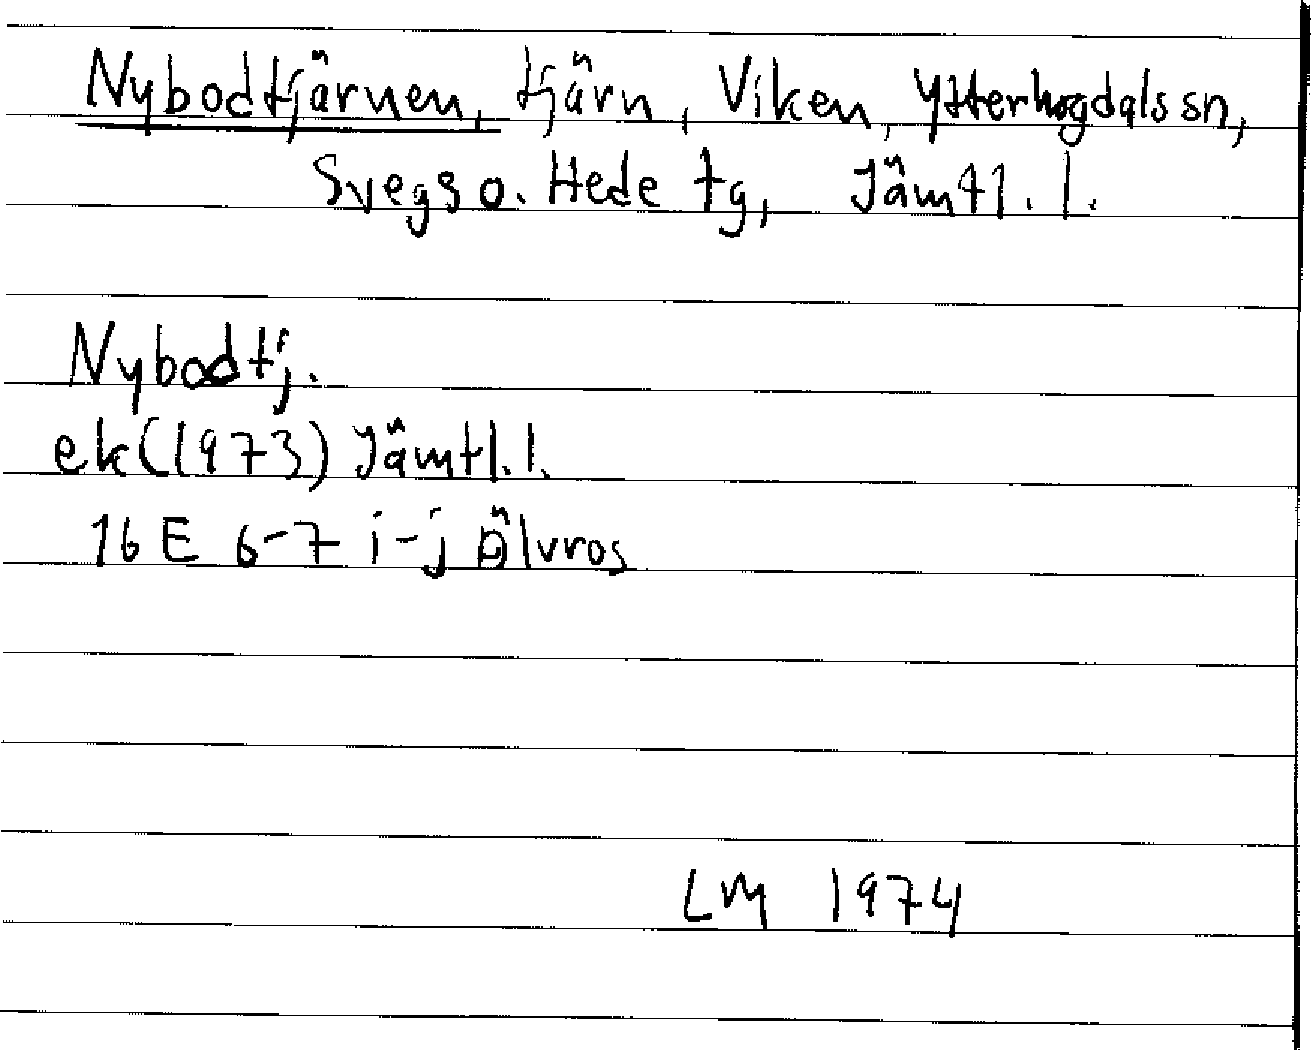 Nybodtjärnen, tjärn, Viken, Ytterhogdals sn,
Svegs o. Hede tg, Jämtl. l.
Nybodtj.
ek(1973) Jämtl. l.
16 E 6-7 i-j Älvros
LM 1974